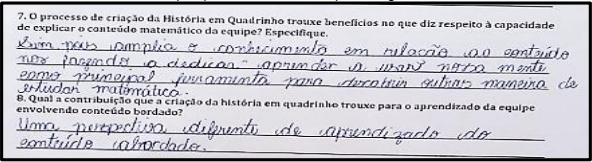 7. O processo de criação da História em Quadrinho trouxe benefícios no que diz respeito à capacidade
de explicar o conteúdo matemático da equipe? Especifique.
Sim pois amplia o conhecimento em relação ao conteúdo
nos fazendo a dedicar aprender a usar nossa mente
como principal ferramenta para descobrir outras maneira de
estudar matemática.
8. Qual a contribuição que a criação da história em quadrinho trouxe para o aprendizado da equipe
envolvendo conteúdo bordado?
Uma perspectiva diferente de aprendizado do
conteúdo abordado.